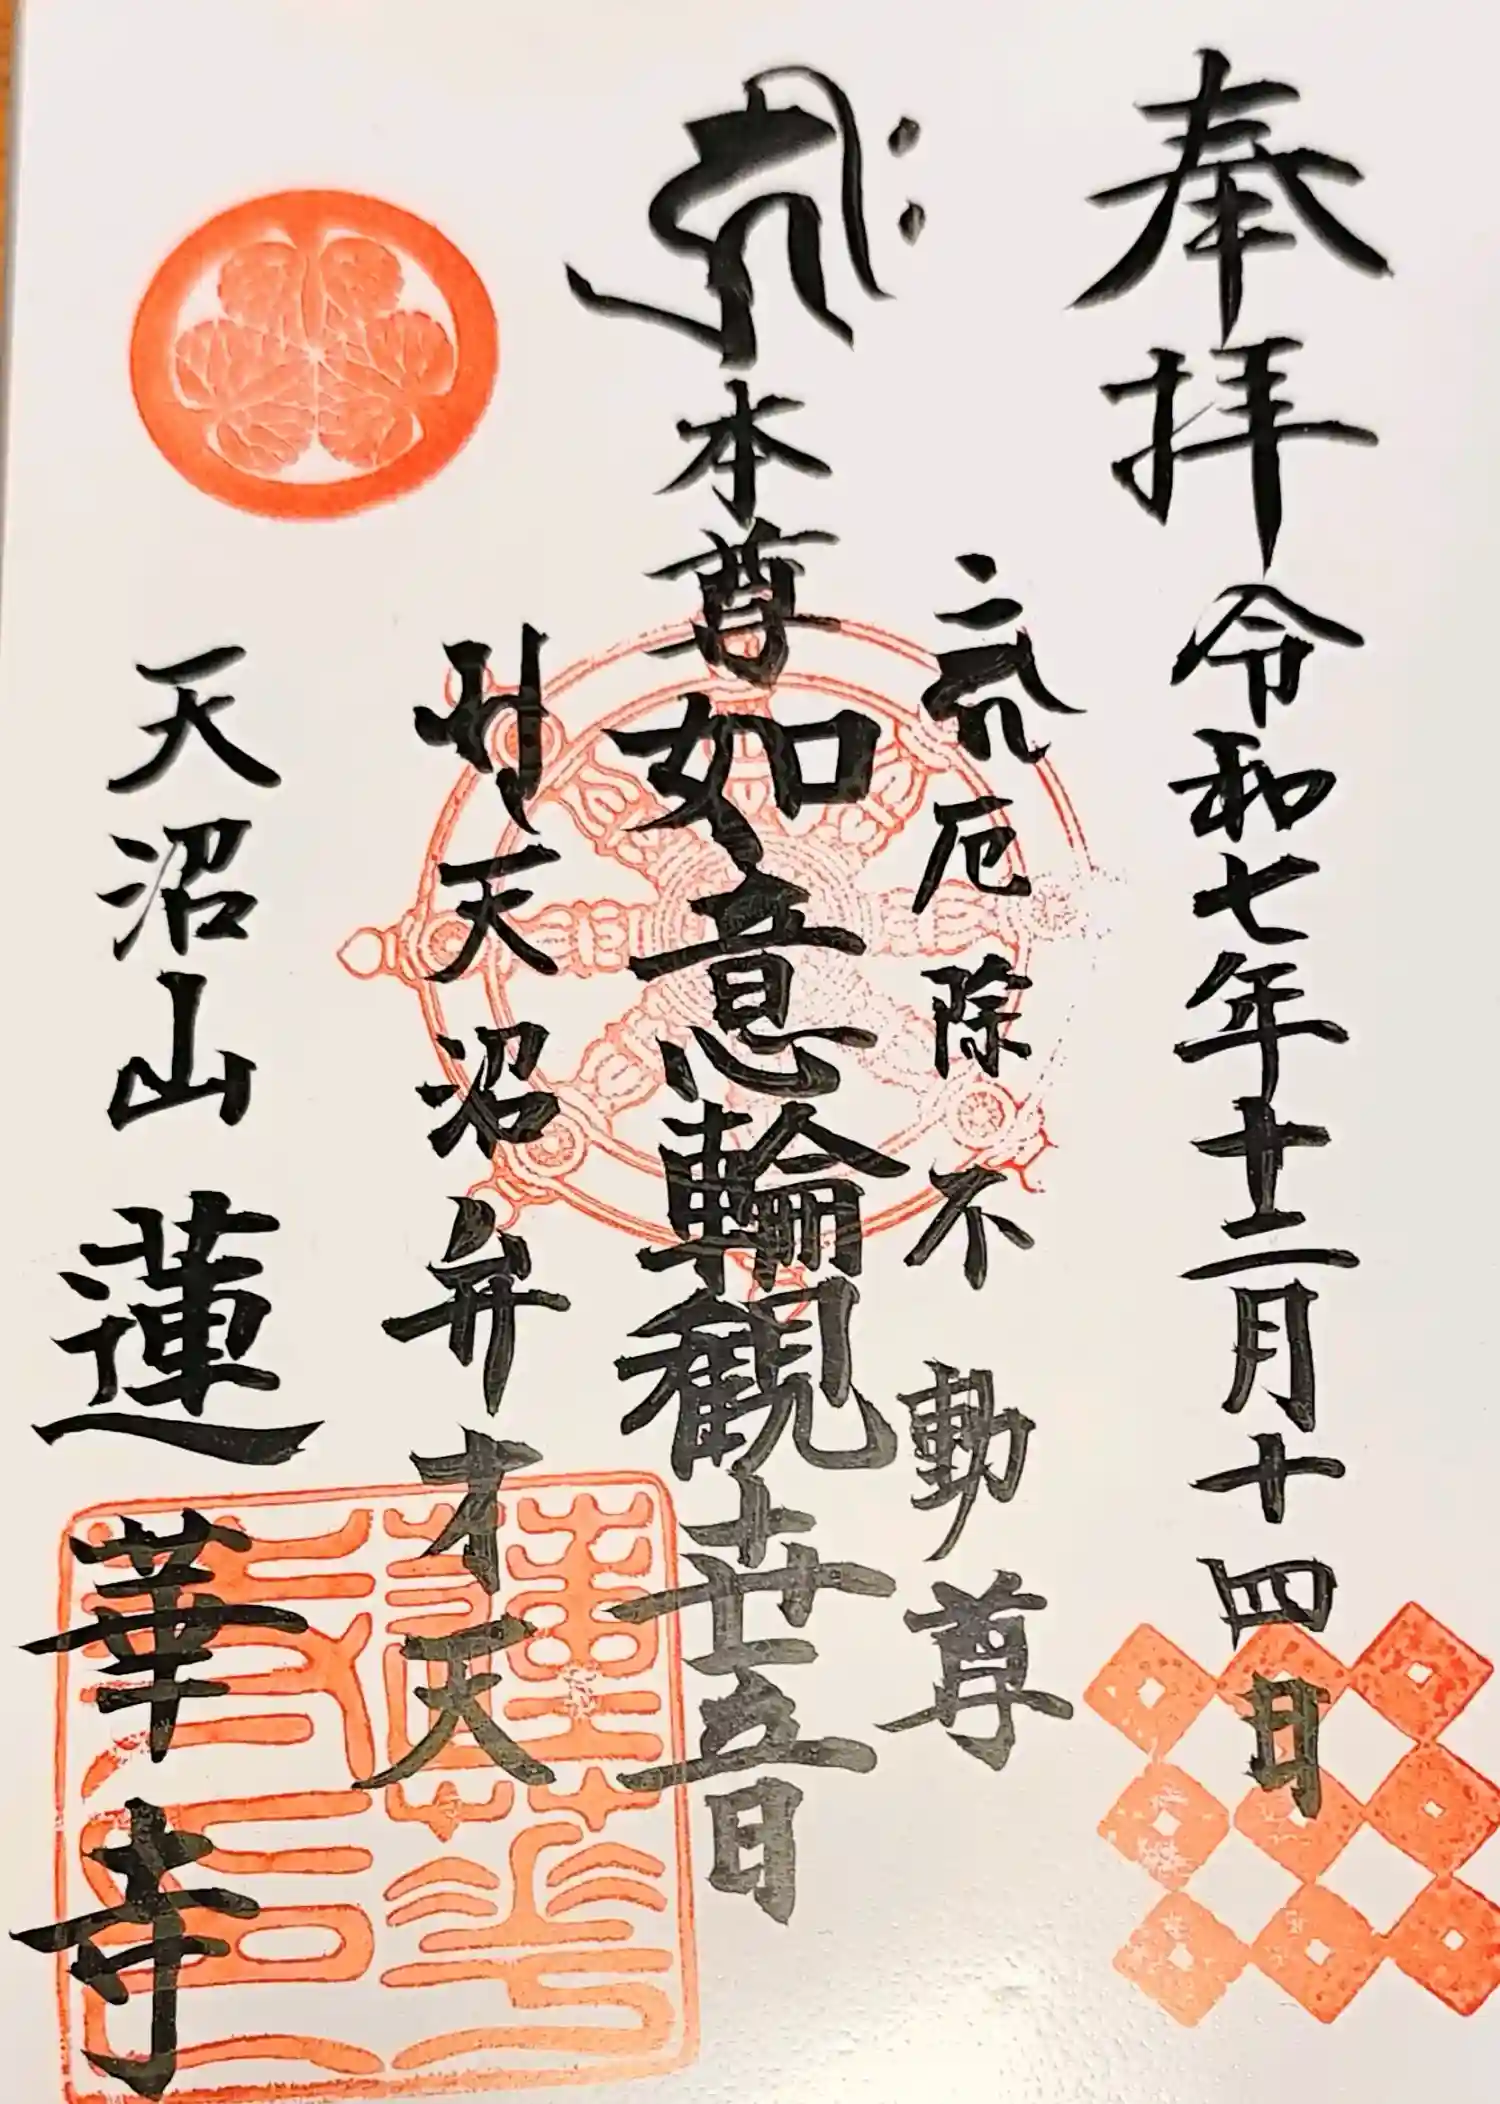 奉拝 令和七年十二月十四日
厄除不動尊
本尊如意輪観世音
天沼弁才天
天沼山 蓮華寺
蓮華寺印